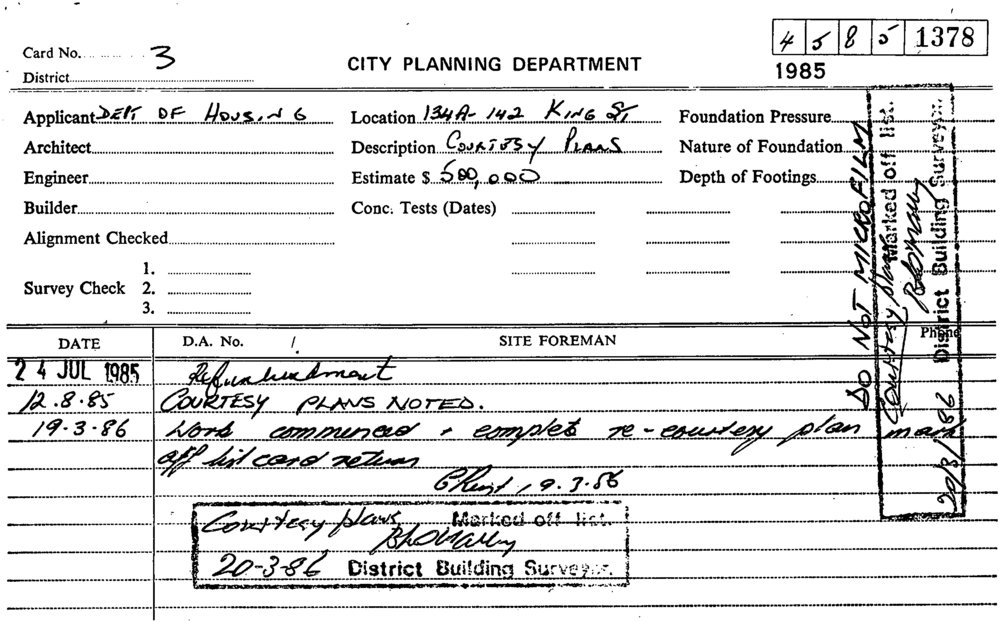 4 5 8 5 1378
1985
Card No. 3
District
CITY PLANNING DEPARTMENT
Applicant DEPT OF HOUSING
Location 134A-142 KING ST
Foundation Pressure
Architect
Description COURTESY PLANS
Nature of Foundation
Engineer
Estimate $ 500,000
Depth of Footings
Builder
Conc. Tests (Dates)
Alignment Checked
Survey Check
1.
2.
3.
DATE D.A. No. SITE FOREMAN Phone
24 JUL 1985 Refurbishment
12.8.85 COURTESY PLANS NOTED.
19-3-86 Work commenced + complete re-courtesy plan mark
off list card return
19.3.86
Courtesy plans Marked off list.
20-3-86 District Building Surveyor.
DO NOT MICROFILM
Marked off list.
Courtesy plans
20/3/86 District Building Surveyor.